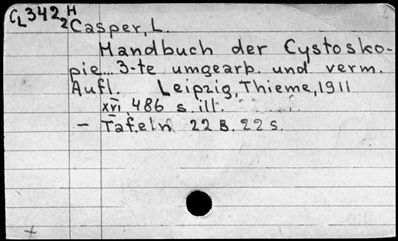 CL342 H2
Casper, L.
Handbuch der Cystosko-
pie... 3-te umgearb. und verm.
Aufl. Leipzig, Thieme, 1911
XVI, 486 s. ill.
- Tafeln 22 B. 22 s.